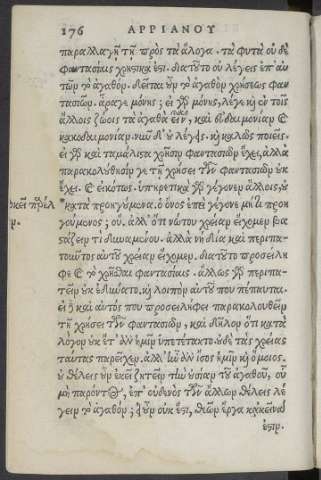 176 ΑΡΡΙΑΝΟΥ
παραλλαγῇ τῇ πρὸς τὰ ἄλογα. τὰ φυτὰ οὐ δὲ
φαντασίαις χρηστικά ἐστι. διὰ τοῦτο οὐ λέγεις ἐπ' αὐ
τῶν τὸ ἀγαθόν. δεῖται οὖν τὸ ἀγαθὸν χρήσεως φαν
τασιῶν. ἆραγε μόνης; εἰ γὰρ μόνης, λέγε καὶ ἐν τοῖς
ἄλλοις ζώοις τὰ ἀγαθὰ εἶναι, καὶ εὐδαιμονίαν καὶ
κακοδαιμονίαν. νῦν δ' οὐ λέγεις. καὶ καλῶς ποιεῖς.
εἰ γὰρ καὶ τὰ μάλιστα χρῆσιν φαντασιῶν ἔχει, ἀλλὰ
παρακολούθησίν γε τῇ χρήσει τῶν φαντασιῶν οὐκ
ἔχει. καὶ εἰκότως. ὑπηρετικὰ γὰρ γέγονεν ἄλλοις, οὐ
κατὰ προηγούμενα. ὁ ὄνος ἐπεὶ γέγονε μή τι προη
γούμενος; οὔ. ἀλλ' ὅτι νώτου χρείαν εἴχομεν βα
στάζειν τι δυναμένου. ἀλλὰ νὴ δία καὶ περιπα
τοῦντος αὐτοῦ χρείαν εἴχομεν. διὰ τοῦτο προσείλη
φε καὶ τὸ χρῆσθαι φαντασίαις. ἄλλως γὰρ περιπα
τεῖν οὐκ ἐδύνατο. καὶ λοιπὸν αὐτοῦ που πέπαυται.
εἰ δὲ καὶ αὐτός που προσειλήφει παρακολουθεῖν
τῇ χρήσει τῶν φαντασιῶν, καὶ δῆλον ὅτι κατὰ
λόγον οὐκ ἔτ' ἂν ἡμῖν ὑπετέτακτο. οὐδὲ τὰς χρείας
ταύτας παρεῖχεν. ἀλλ' ἦν ἂν ἴσος ἡμῖν καὶ ὅμοιος.
οὐ θέλεις οὖν ἐκεῖ ζητεῖν τὴν οὐσίαν τοῦ ἀγαθοῦ, οὗ
μὴ παρόντος, ἐπ' οὐδενὸς τῶν ἄλλων θέλεις λέ
γειν τὸ ἀγαθόν; τί οὖν οὐκ ἔστι, θεῶν ἔργα κἀκεῖνα;
ἔστιν.